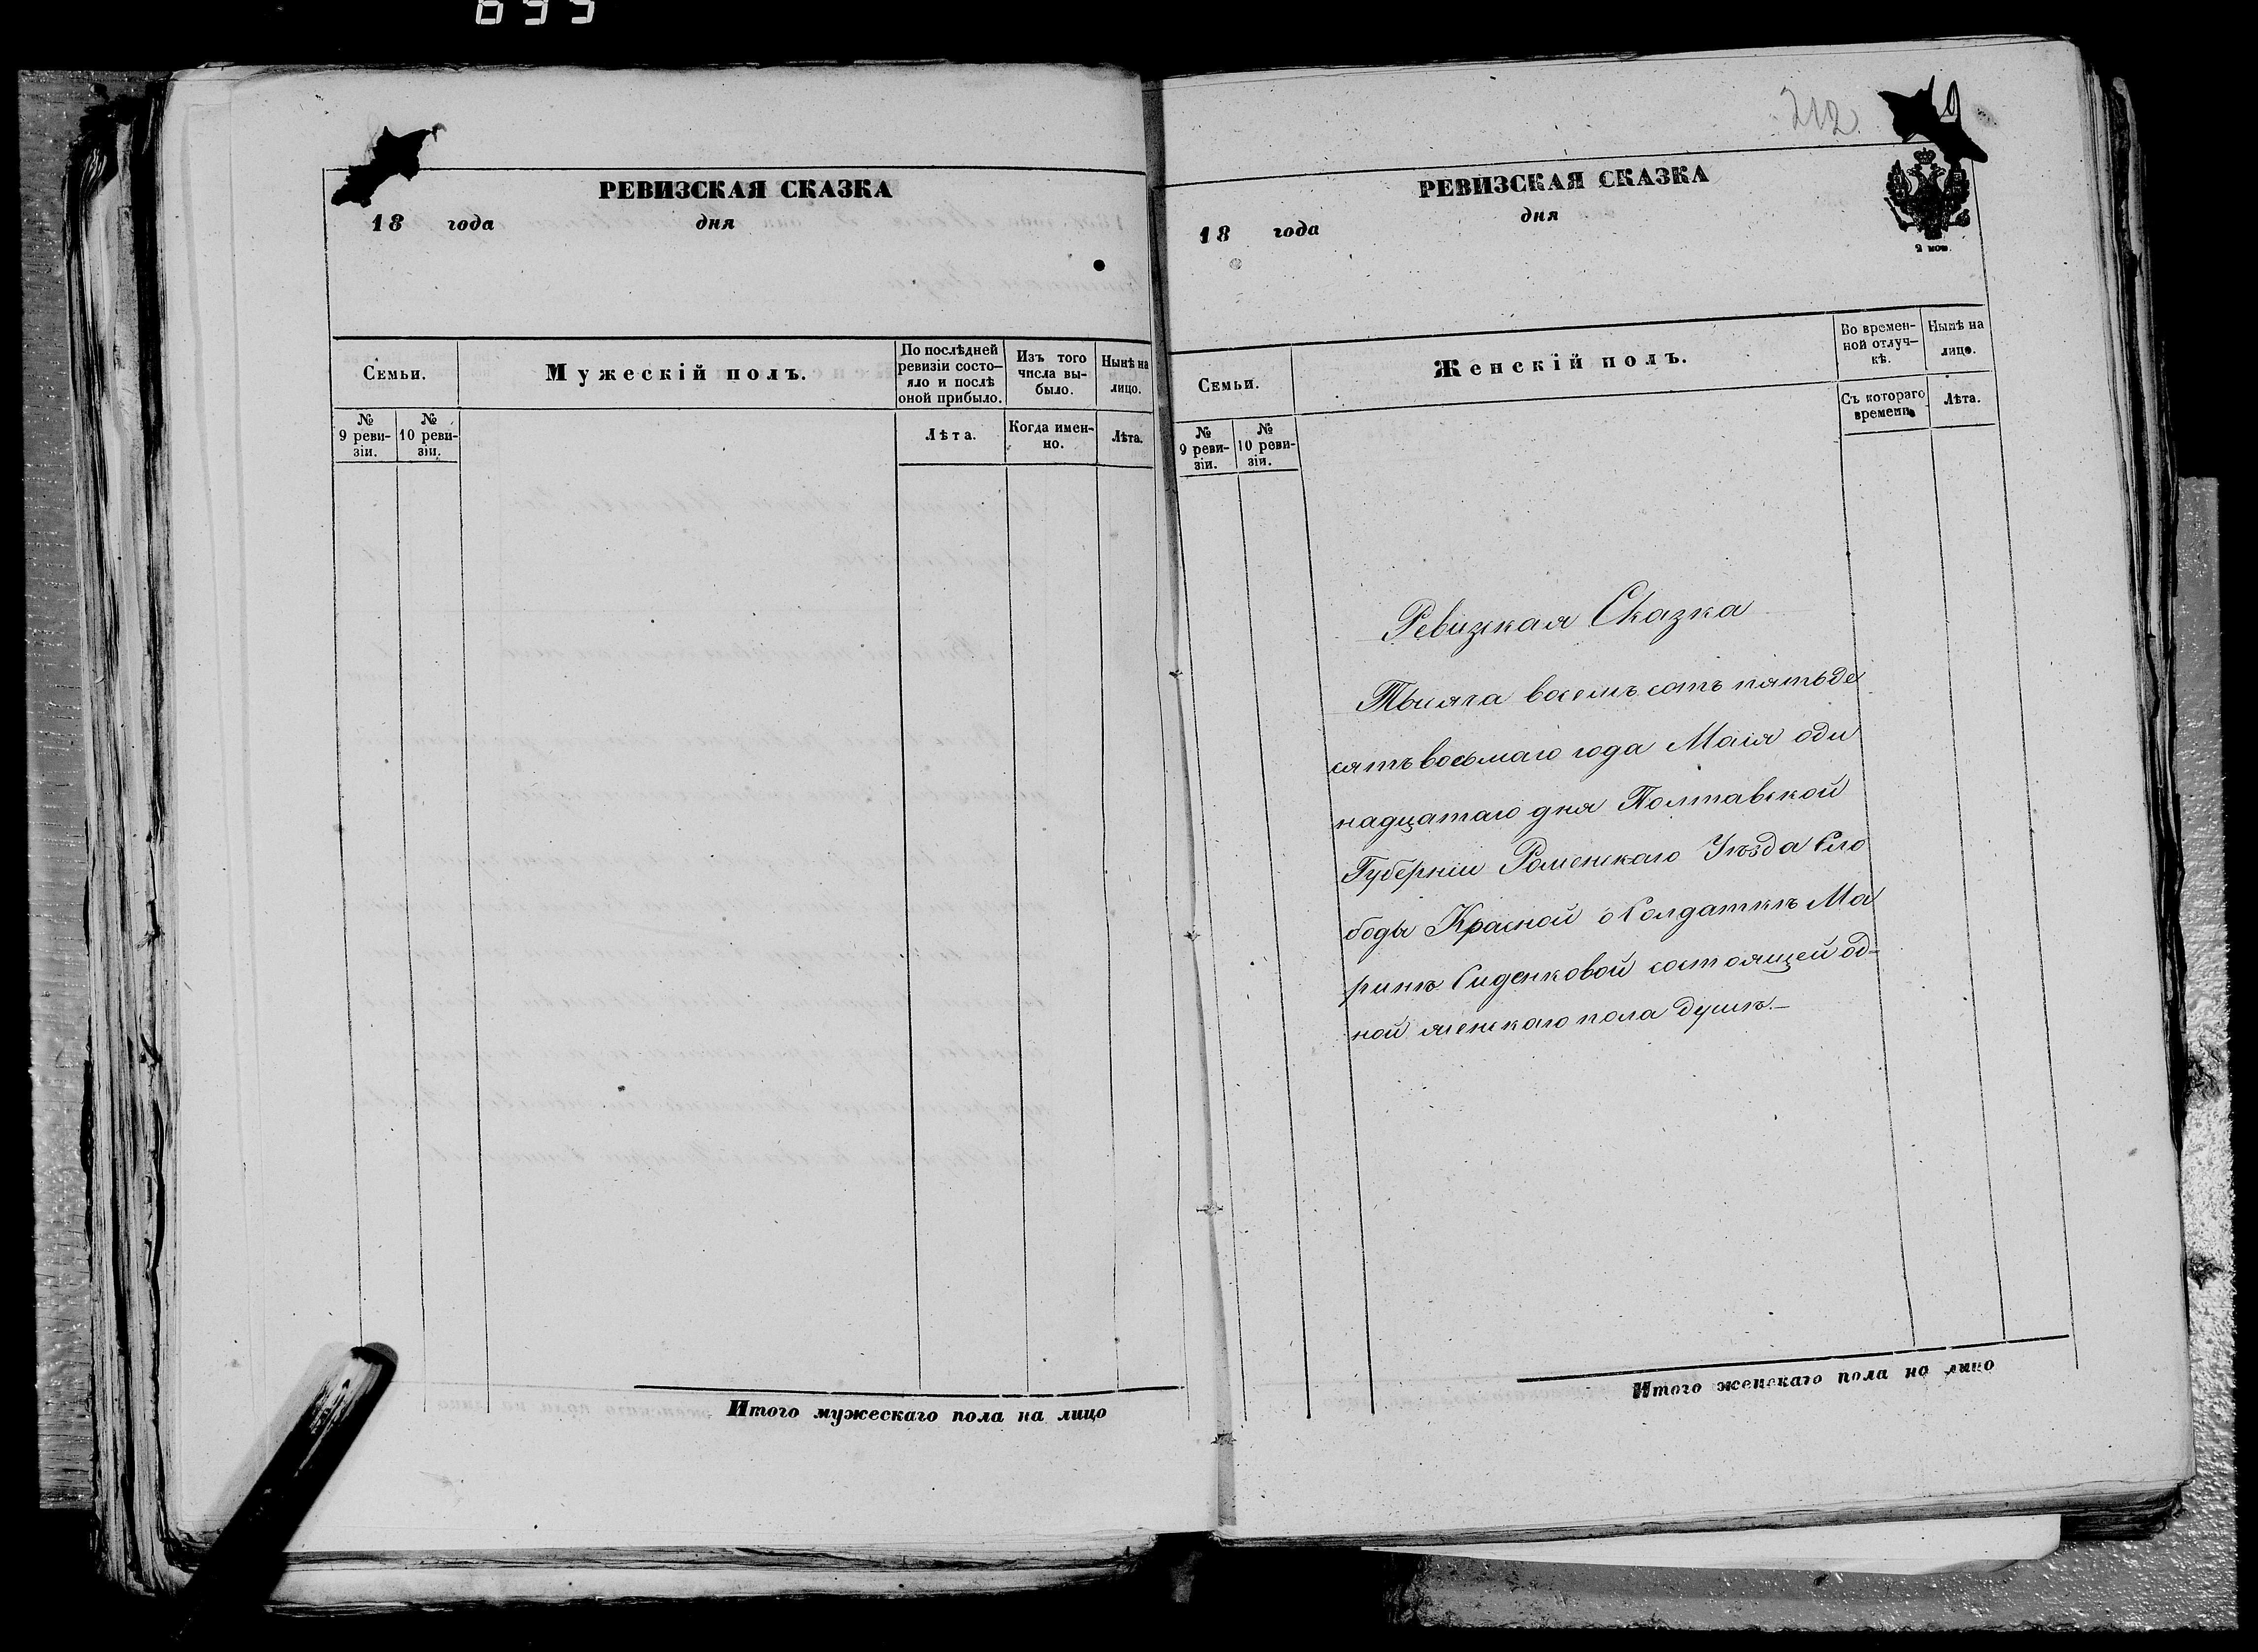 699
РЕВИЗСКАЯ СКАЗКА
18 года дня
Семьи.
Мужескій полъ.
По послѣдней
ревизіи состо-
яло и послѣ
оной прибыло.
Изъ того
числа вы-
было.
Нынѣ на
лицо.
№
9 реви-
зіи.
№
10 реви-
зіи.
Лѣта.
Когда имен-
но.
Лѣта.
Итого мужескаго пола на лицо
212
РЕВИЗСКАЯ СКАЗКА
18 года дня
2 коп.
Семьи.
Женскій полъ.
Во времен-
ной отлуч-
кѣ.
Нынѣ на
лицо.
№
9 реви-
зіи.
№
10 реви-
зіи.
Съ котораго
времени.
Лѣта.
Ревизкая Сказка
Тысяча восемъ сотъ пятьде
сятъ восьмаго года Маія оди
надцатаго дня Полтавской
Губерніи Роменскаго Уѣзда Сло
боды Красной о Солдаткѣ Ма
ринѣ Сиденковой состоящей од=
ной женскаго пола душѣ.—
Итого женскаго пола на лицо